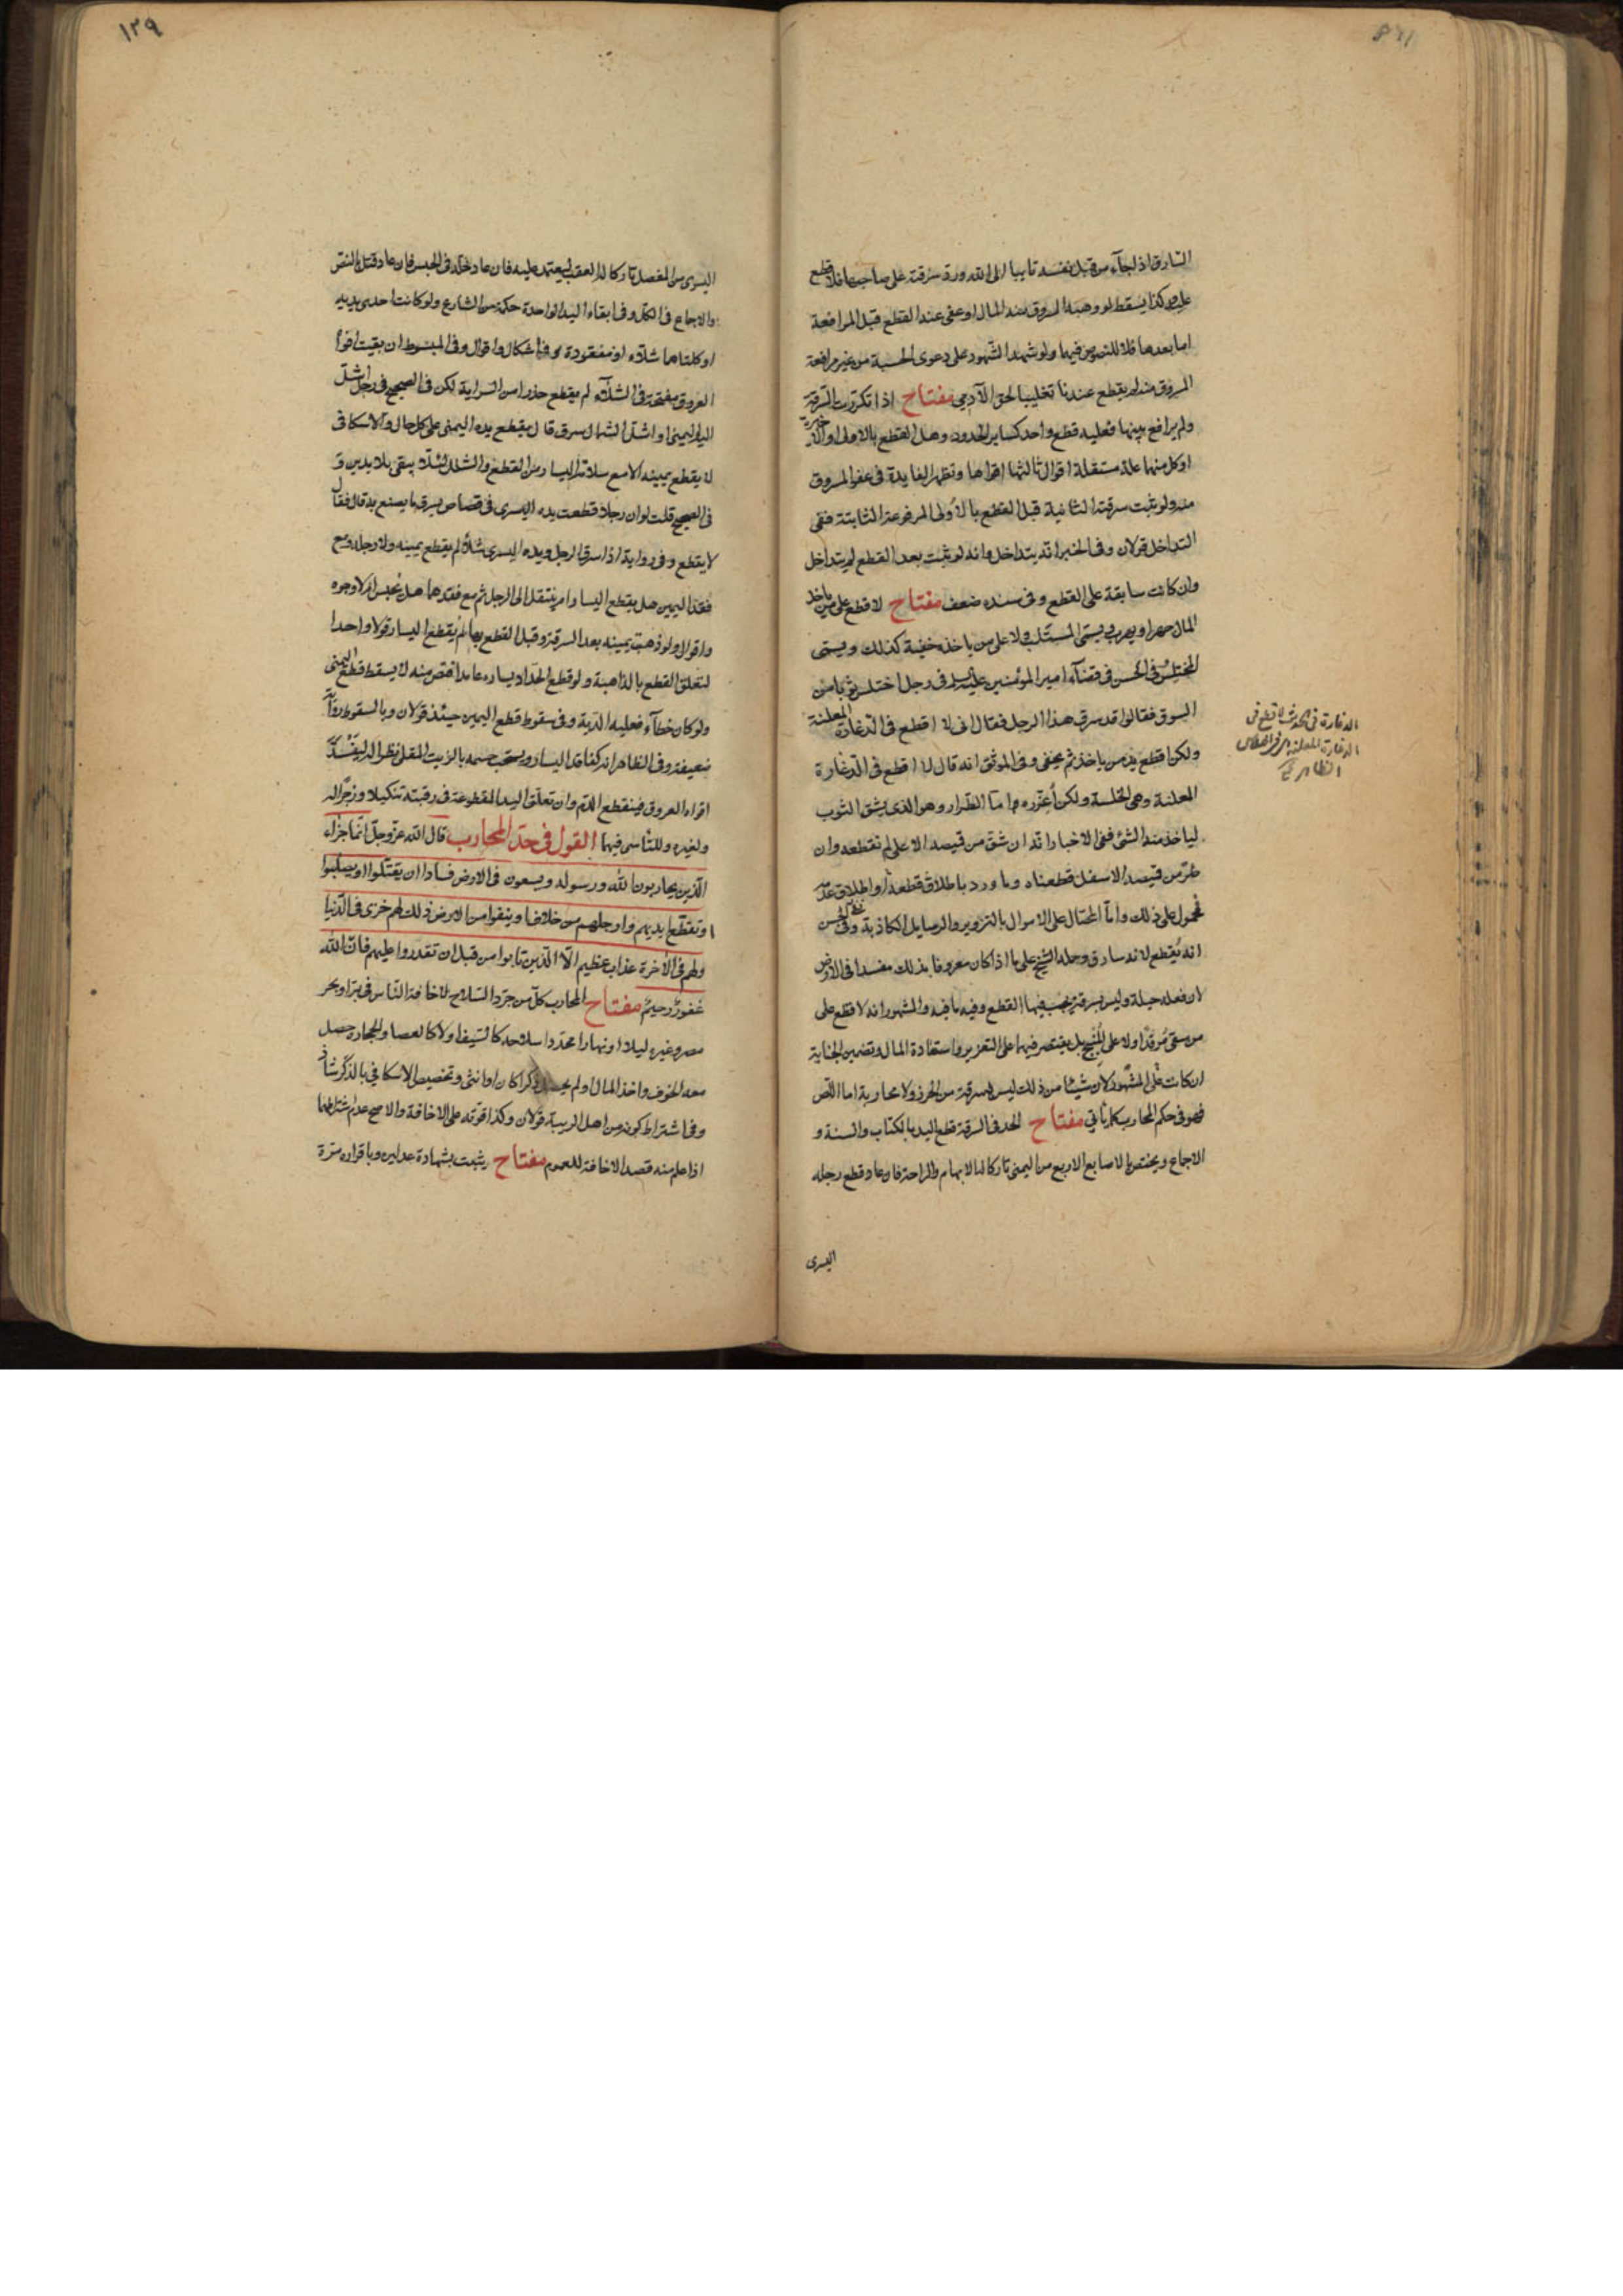 السارق اذا جآء من قبل نفسه تايبا الى الله ورد سرقته على صاحبها فلا قطع
عليه وكذا يسقط لو وهبه المسروق منه المال او عفى عنه القطع قبل المرافعة
اما بعدها فلا للنصوص فيها ولو شهد الشهود على دعوى الحسبة من غير مرافعة
المسروق منه لم يقطع عندنا تغليبا لحق الآدمي مفتاح اذا تكررت السرقة
ولم يرافع بينهما فعليه قطع واحد كساير الحدود وهل القطع بالاولى او الاخيرة
او كل منهما علة مستقلة اقوال ثالثها اقواها وتظهر الفايدة فى عفو المسروق
منه ولو ثبت سرقته الثانية قبل القطع بالأولى المرفوعة الثابتة ففى
التداخل قولان وفى الخبر انه يتداخل وانه لو ثبت بعد القطع لم يتداخل
وان كانت سابقة على القطع وفى سنده ضعف مفتاح لا قطع على من ياخذ
المال جهرا ويهرب ويسمّى المستلب ولا على من ياخذه خفية كذلك ويسمّى
المختلس فى الحسن فى قضآء امير المؤمنين عليه السلم فى رجل اختلس ثوبا من
السوق فقالوا قد سرق هذا الرجل فقال انى لا اقطع فى الدغارة المعلنة
ولكن اقطع يد من ياخذ ثم يخفى وفى الموثق انه قال لا اقطع فى الدغارة
المعلنة وهى الخلسة ولكن أعزّره واما الطرار وهو الذى يشق الثوب
لياخذ منه الشئ ففى الاخبار انه ان شق من قميصه الاعلى لم نقطعه وان
طرّ من قميصه الاسفل قطعناه وما ورد باطلاق قطعه او اطلاق عدمه
فمحمول على ذلك وامّا المحتال على الاموال بالتزوير والرسايل الكاذبة وفى الحسن
انه يُقطع لانه سارق وحمله الشيخ على ما اذا كان معروفا بذلك مفسدا فى الارض
لان فعله حيلة وليس بسرقة يجب فيها القطع وفيه ما فيه والمشهور انه لا قطع على
من سقى مُرقدًا ولا على المُبنّج بل يقتصر فيهما على التعزير واستعادة المال وتضمين الجناية
ان كانت على المشهور لان شيئا من ذلك ليس بسرقة من الحرز ولا محاربة اما اللص
فهو فى حكم المحارب كما ياتي مفتاح الحد فى السرقة قطع اليد بالكتاب والسنة و
الاجماع ويختص بالاصابع الاربع من اليمنى تاركا لها الابهام والراحة فان عاد قطع رجله
اليسرى
الدغارة فى الحديث لا قطع فى
الدغارة المعلنة
الظاهرة
١٣٩
اليسرى من المفصل تاركا له العقب ليعتمد عليه فان عاد خلّد فى الحبس فان عاد قتل بالنص
والاجماع فى الكل وفى ابقاء اليد الواحدة حكمة من الشارع ولو كانت احدى يديه
او كلتاهما شلآء او مفقودة ففيه اشكال واقوال وفى المبسوط ان بقيت افواه
العروق مفتحة فى الشلآء لم يقطع حذرا من السراية لكن فى الصحيح فى رجل اشلّ
اليد اليمنى او اشلّ الشمال سرق قال يقطع يده اليمنى على كل حال والاسكافى
لا يقطع يمينه الا مع سلامة اليسار من القطع والشلل لئلا يبقى بلا يدين و
فى الصحيح قلت لو ان رجلا قطعت يده اليسرى فى قصاص فسرق ما يصنع به قال فقال
لا يقطع وفى رواية اذا سرق الرجل ويده اليسرى شلاّء لم يقطع يمينه ولا رجله ومع
فقد اليمين هل يقطع اليسار ام ينتقل الى الرجل ثم مع فقدها هل يُحبس ام لا وجوه
واقوال ولو ذهبت يمينه بعد السرقة وقبل القطع بها لم يقطع اليسار قولا واحدا
لتعلق القطع بالذاهبة ولو قطع الحدّاد يساره عامدا اقتص منه لا يسقط قطع اليمنى
ولو كان خطآء فعليه الدّية وفى سقوط قطع اليمين حينئذ قولان وبالسقوط رواية
ضعيفة وفى الظاهر انه كفاقد اليسار ويستحب حسمه بالزيت المغلى نظرا له ليَنسدّ
افواه العروق فينقطع الدّم وان تعلّق اليد المقطوعة فى رقبته تنكيلا وزجرًا له
ولغيره وللتاسى فيهما القول فى حدّ المحارب قال الله عزّ وجلّ انّما جزاء
الّذين يحاربون الله ورسوله ويسعون فى الارض فسادا ان يقتّلوا او يصلبوا
او تقطّع ايديهم وارجلهم من خلاف او ينفوا من الارض ذلك لهم خزى فى الدّنيا
ولهم فى الأخرة عذاب عظيم الّا الّذين تابوا من قبل ان تقدروا عليهم فانّ الله
غفورٌ رحيمٌ مفتاح المحارب كلّ من جرّد السّلاح لاخافة النّاس فى بر او بحر
مصر وغيره ليلا او نهارا محدّدا سلاحه كالسّيف او لا كالعصا والحجارة حصل
معه الخوف واخذ المال او لم يحصل ذكرا كان او انثى وتخصيص الاسكافي بالذكر شاذّ
وفى اشتراط كونه من اهل الريبة قولان وكذا قوّته على الاخافة والاصح عدم اشتراطهما
اذا علم منه قصد الاخافة للعموم مفتاح يثبت بشهادة عدلين وباقراره مرّة